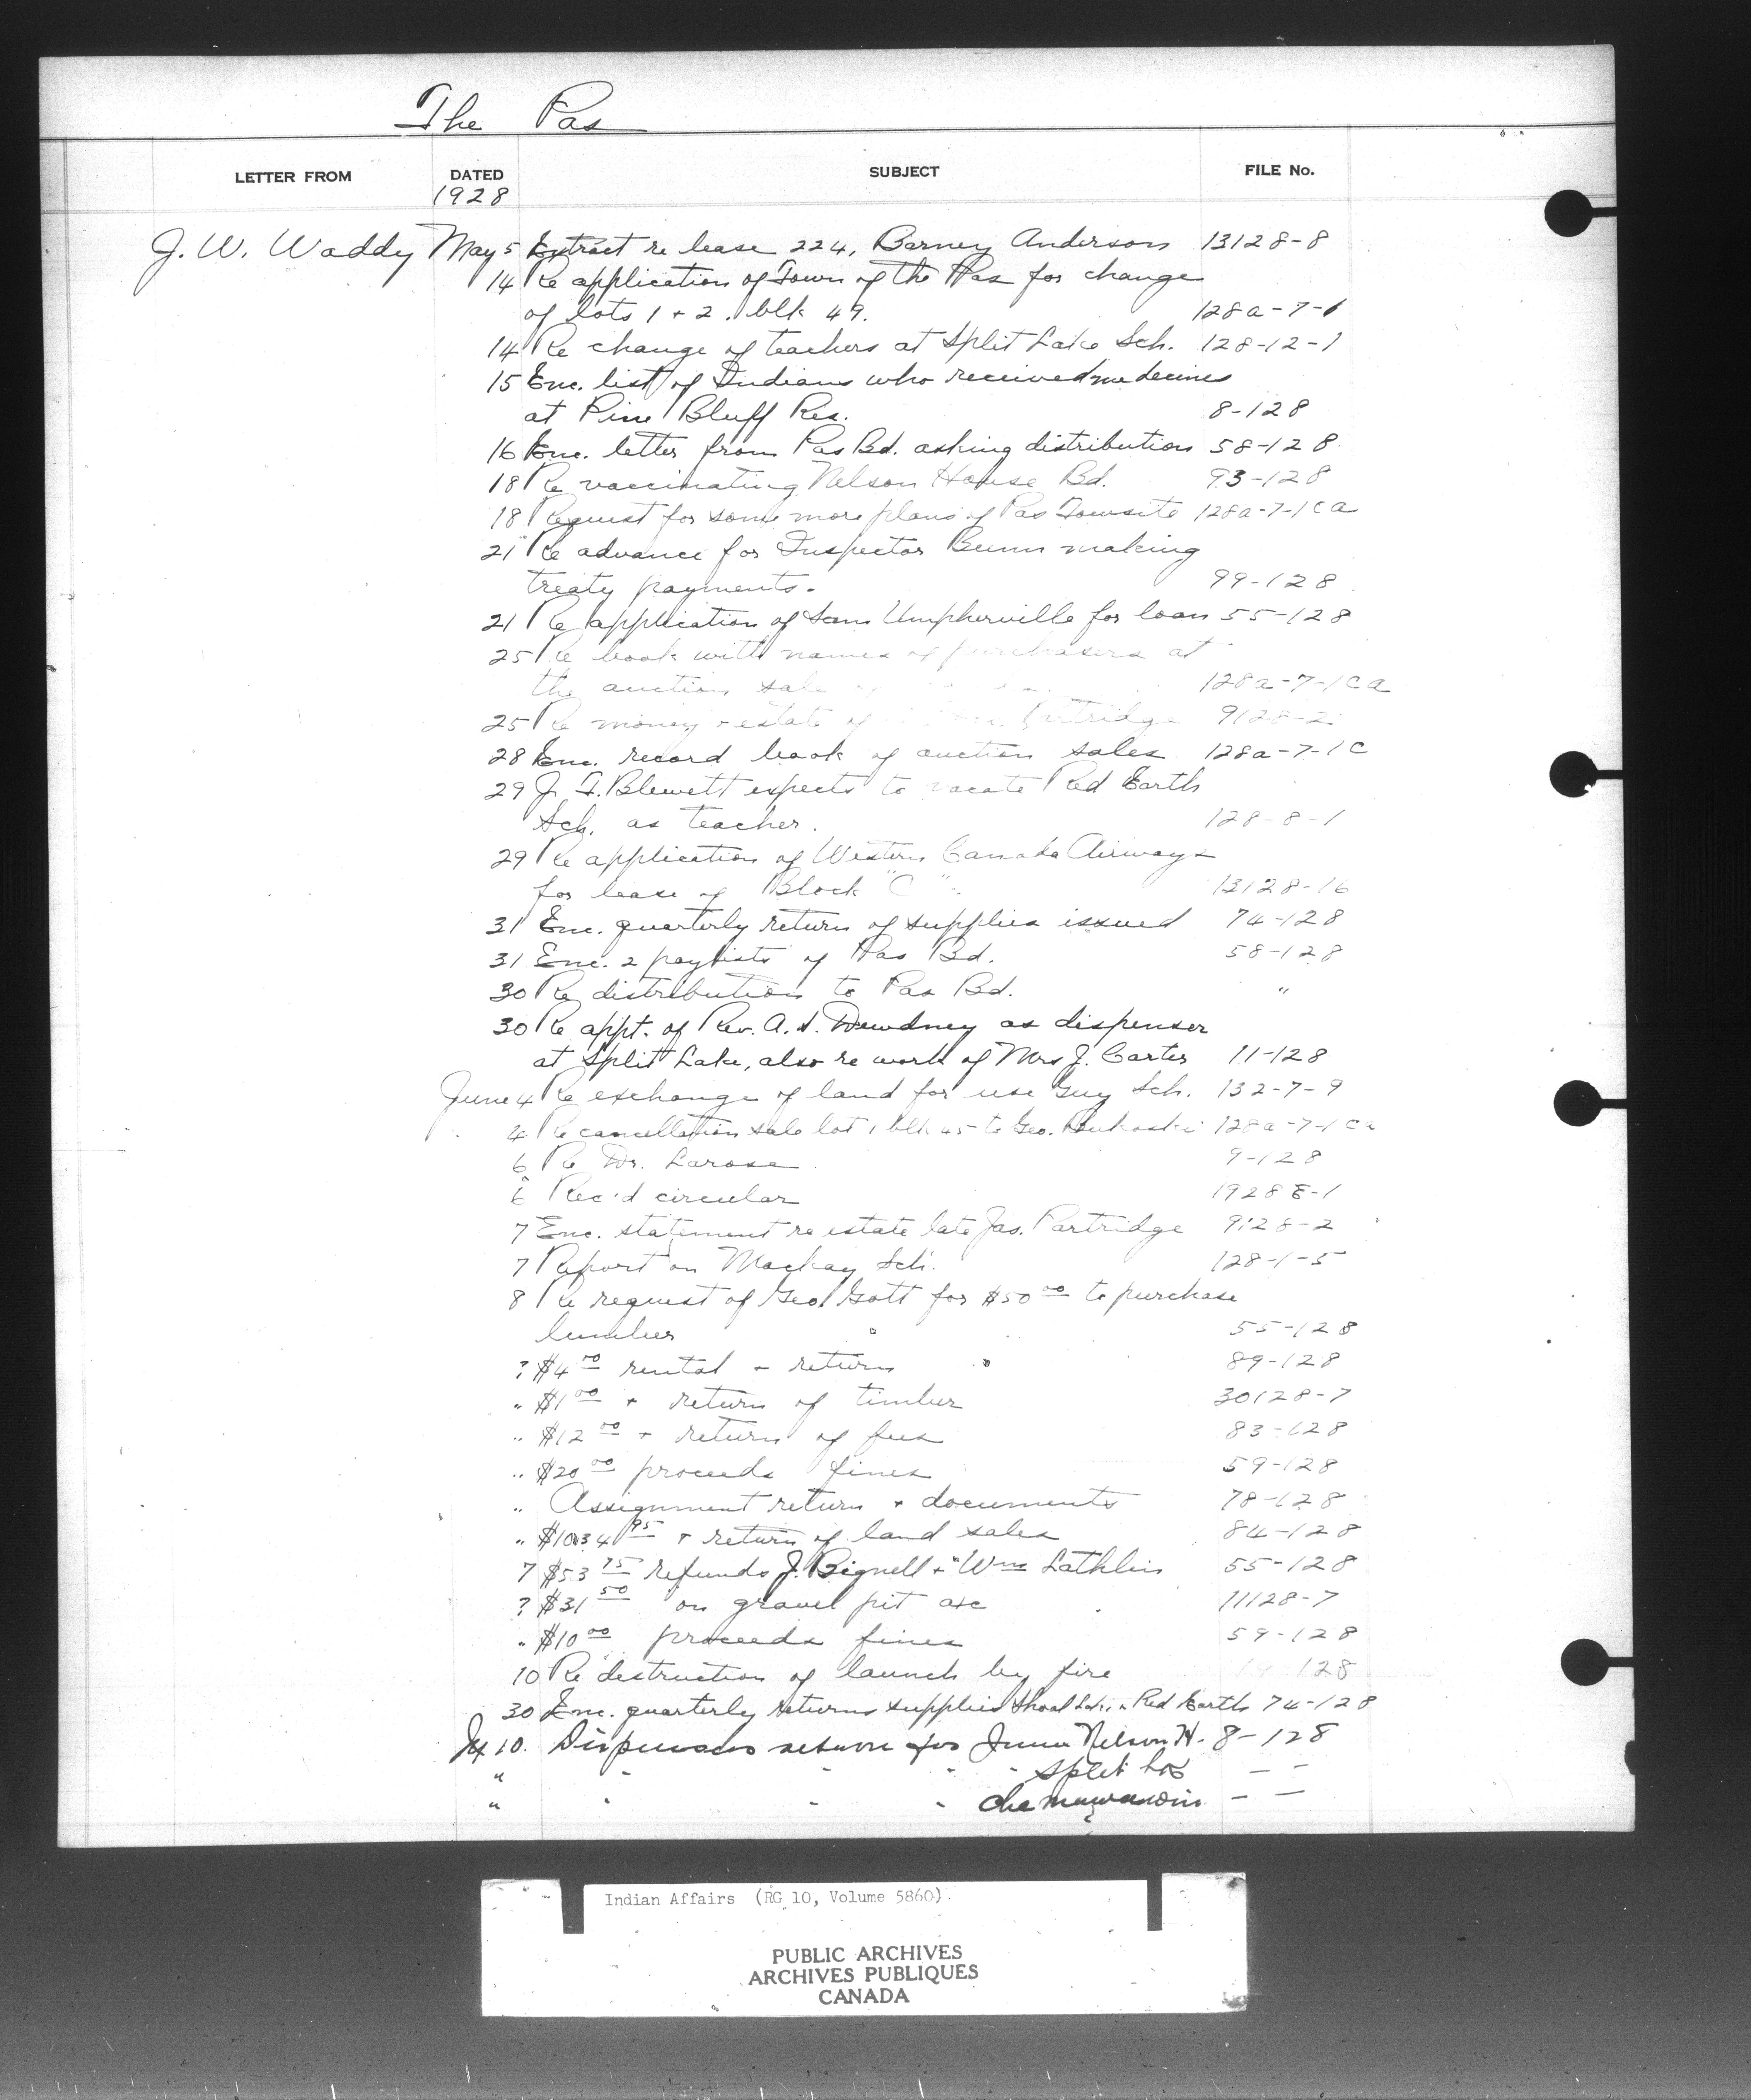 The Pas
LETTER FROM DATED SUBJECT FILE No.
1928
J. W. Waddy May 5 Extract re lease 224, Barney Anderson 13128-8
14 Re application of Town of the Pas for change
of lots 1 + 2. blk 49. 128a-7-1
14 Re change of teachers at Split Lake Sch. 128-12-1
15 Enc. list of Indians who received medecines
at Pine Bluff Res. 8-128
16 Enc. letter from Pas Bd. asking distribution 58-128
18 Re vaccinating Nelson House Bd. 93-128
18 Request for some more plans of Pas Townsite 128a-7-1ca
21 Re advance for Inspector Bunn making
treaty payments. 99-128
21 Re application of Sam Umpherville for loan 55-128
25 Re book with names of purchasers at
the auction sale 128a-7-1ca
25 Re money + estate of Partridge 9128-2
28 Enc. record book of auction sales 128a-7-1C
29 J. T. Blewett expects to vacate Red Earth
Sch. as teacher. 128-8-1
29 Re application of Western Canada Airways
for lease of Block "C". 13128-16
31 Enc. quarterly return of supplies issued 74-128
31 Enc. 2 paylists of Pas Bd. 58-128
30 Re distribution to Pas Bd. "
30 Re appt. of Rev. A. S. Dewdney as dispenser
at Split Lake, also re work of Mrs J. Carter 11-128
June 4 Re exchange of land for use Guy Sch. 132-7-9
4 Re cancellation sale lot 1 blk 45 to Geo. 128a-7-1ca
6 Re Dr. Larose 9-128
6 Rec'd circular 1928E-1
7 Enc. statement re estate late Jas. Partridge 9128-2
7 Report on Mackay Sch. 128-1-5
8 Re request of Geo. Gott for $50 00 to purchase
lumber 55-128
? $4 00 rental + return 89-128
" $1 00 + return of timber 30128-7
" $12 00 + return of fees 83-128
" $20 00 proceeds fines 59-128
" Assignment return + documents 78-128
" $1034 95 + return of land sales 84-128
7 $53 75 refunds J. Bignell + Wm Lathlin 55-128
? $31 50 on gravel pit a/c 11128-7
" $10 00 proceeds fines 59-128
10 Re destruction of launch by fire 128
30 Enc. quarterly returns supplies Shoal Lake + Red Earth 74-128
10. Dispensers return for June Nelson H. 8-128
" - - - - Split Lake - -
" - - - Chemawawin - -
Indian Affairs (RG 10, Volume 5860)
PUBLIC ARCHIVES
ARCHIVES PUBLIQUES
CANADA